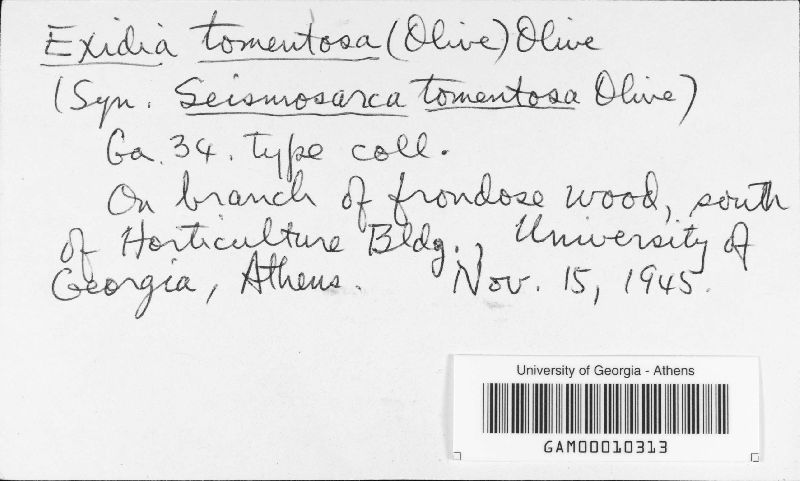 Exidia tomentosa (Olive) Olive
(Syn. Seismosarca tomentosa Olive)
Ga. 34. type coll.
On branch of frondose wood, south
of Horticulture Bldg., University of
Georgia, Athens. Nov. 15, 1945.
University of Georgia - Athens
GAM00010313